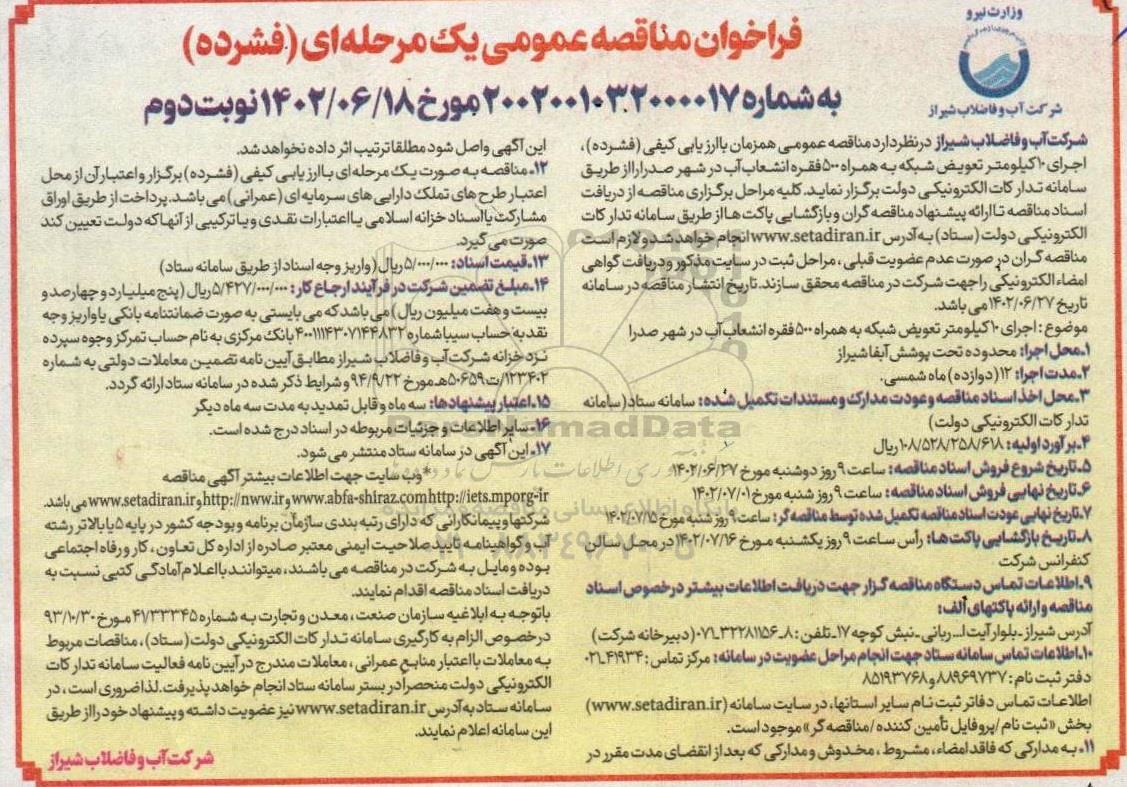 وزارت نیرو
شرکت آب و فاضلاب شیراز
فراخوان مناقصه عمومی یک مرحله‌ای (فشرده)
به شماره ۲۰۰۲۰۰۱۰۳۲۰۰۰۰۱۷ مورخ ۱۴۰۲/۰۶/۱۸ نوبت دوم
شرکت آب و فاضلاب شیراز درنظر دارد مناقصه عمومی همزمان با ارزیابی کیفی (فشرده)،
اجرای ۱۰کیلومتر تعویض شبکه به همراه ۵۰۰ فقره انشعاب آب در شهر صدرا را از طریق
سامانه تدارکات الکترونیکی دولت برگزار نماید. کلیه مراحل برگزاری مناقصه از دریافت
اسناد مناقصه تا ارائه پیشنهاد مناقصه گران و بازگشایی پاکت ها از طریق سامانه تدارکات
الکترونیکی دولت (ستاد) به آدرس www.setadiran.ir انجام خواهد شد و لازم است
مناقصه گران در صورت عدم عضویت قبلی، مراحل ثبت در سایت مذکور و دریافت گواهی
امضاء الکترونیکی را جهت شرکت در مناقصه محقق سازند. تاریخ انتشار مناقصه در سامانه
تاریخ ۱۴۰۲/۰۶/۲۷ می باشد.
موضوع: اجرای ۱۰کیلومتر تعویض شبکه به همراه ۵۰۰ فقره انشعاب آب در شهر صدرا
۱ـ محل اجرا: محدوده تحت پوشش آبفا شیراز
۲ـ مدت اجرا: ۱۲ (دوازده) ماه شمسی.
۳ـ محل اخذ اسناد مناقصه و عودت مدارک و مستندات تکمیل شده: سامانه ستاد (سامانه
تدارکات الکترونیکی دولت)
۴ـ برآورد اولیه: ۱۰۸/۵۲۸/۲۵۸/۶۱۸ ریال
۵ـ تاریخ شروع فروش اسناد مناقصه: ساعت ۹ روز دوشنبه مورخ ۱۴۰۲/۰۶/۲۷
۶ـ تاریخ نهایی فروش اسناد مناقصه: ساعت ۹ روز شنبه مورخ ۱۴۰۲/۰۷/۰۱
۷ـ تاریخ نهایی عودت اسناد مناقصه تکمیل شده توسط مناقصه گر: ساعت ۹ روز شنبه مورخ ۱۴۰۲/۰۷/۱۵
۸ـ تاریخ بازگشایی پاکت ها: رأس ساعت ۹ روز یکشنبه مورخ ۱۴۰۲/۰۷/۱۶ در محل سالن
کنفرانس شرکت
۹ـ اطلاعات تماس دستگاه مناقصه گزار جهت دریافت اطلاعات بیشتر درخصوص اسناد
مناقصه و ارائه پاکتهای الف:
آدرس شیراز ـ بلوار آیت ا... ربانی ـ نبش کوچه ۱۷ـ تلفن: ۸ـ۳۲۲۸۱۱۵۶ـ۰۷۱ (دبیرخانه شرکت)
۱۰ـ اطلاعات تماس سامانه ستاد جهت انجام مراحل عضویت در سامانه: مرکز تماس: ۴۱۹۳۴ـ۰۲۱
دفتر ثبت نام: ۸۸۹۶۹۷۳۷ و ۸۵۱۹۳۷۶۸
اطلاعات تماس دفاتر ثبت نام سایر استانها، در سایت سامانه (www.setadiran.ir)
بخش «ثبت نام/پروفایل تأمین کننده/مناقصه گر» موجود است.
۱۱ـ به مدارکی که فاقد امضاء، مشروط، مخدوش و مدارکی که بعد از انقضای مدت مقرر در
این آگهی واصل شود مطلقا ترتیب اثر داده نخواهد شد.
۱۲ـ مناقصه به صورت یک مرحله ای با ارزیابی کیفی (فشرده) برگزار و اعتبار آن از محل
اعتبار طرح های تملک دارایی های سرمایه ای (عمرانی) می باشد. پرداخت از طریق اوراق
مشارکت یا اسناد خزانه اسلامی یا اعتبارات نقدی و یا ترکیبی از آنها که دولت تعیین کند
صورت می گیرد.
۱۳ـ قیمت اسناد: ۵/۰۰۰/۰۰۰ ریال (واریز وجه اسناد از طریق سامانه ستاد)
۱۴ـ مبلغ تضمین شرکت در فرآیند ارجاع کار: ۵/۴۲۷/۰۰۰/۰۰۰ ریال (پنج میلیارد و چهارصد و
بیست و هفت میلیون ریال) می باشد که می بایستی به صورت ضمانتنامه بانکی یا واریز وجه
نقد به حساب سیبا شماره ۴۰۰۱۱۱۴۳۰۷۱۴۴۸۳۲ بانک مرکزی به نام حساب تمرکز وجوه سپرده
نزد خزانه شرکت آب و فاضلاب شیراز مطابق آیین نامه تضمین معاملات دولتی به شماره
۱۲۳۴۰۲/ت۵۰۶۵۹هـ مورخ ۹۴/۹/۲۲ و شرایط ذکر شده در سامانه ستاد ارائه گردد.
۱۵ـ اعتبار پیشنهادها: سه ماه و قابل تمدید به مدت سه ماه دیگر
۱۶ـ سایر اطلاعات و جزئیات مربوطه در اسناد درج شده است.
۱۷ـ این آگهی در سامانه ستاد منتشر می شود.
*وب سایت جهت اطلاعات بیشتر آگهی مناقصه
www.abfa-shiraz.com http://iets.mporg-ir و http://nww.ir و www.setadiran.ir می باشد.
شرکتها و پیمانکارانی که دارای رتبه بندی سازمان برنامه و بودجه کشور در پایه ۵ یا بالاتر رشته
آب و گواهینامه تأیید صلاحیت ایمنی معتبر صادره از اداره کل تعاون، کار و رفاه اجتماعی
بوده و مایل به شرکت در مناقصه می باشند، میتوانند با اعلام آمادگی کتبی نسبت به
دریافت اسناد مناقصه اقدام نمایند.
باتوجه به ابلاغیه سازمان صنعت، معدن و تجارت به شماره ۴۱/۳۳۳۴۵ مورخ ۹۳/۱۰/۳۰
درخصوص الزام به کارگیری سامانه تدارکات الکترونیکی دولت (ستاد)، مناقصات مربوط
به معاملات با اعتبار منابع عمرانی، معاملات مندرج در آیین نامه فعالیت سامانه تدارکات
الکترونیکی دولت منحصرا در بستر سامانه ستاد انجام خواهد پذیرفت. لذا ضروری است، در
سامانه ستاد به آدرس www.setadiran.ir نیز عضویت داشته و پیشنهاد خود را از طریق
این سامانه اعلام نمایند.
شرکت آب و فاضلاب شیراز
ParsNamadData
پایگاه اطلاع رسانی مناقصه و مزایده